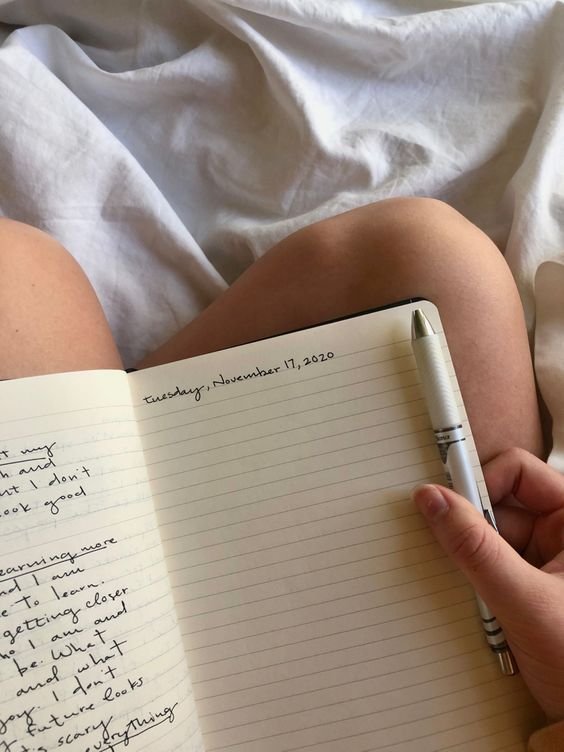 t my
h and
nt I don't
ook good
earning more
nd I am
e to learn.
getting closer
ho I am and
be. What
and what
joy. I don't
future looks
t's scary
everything
Tuesday, November 17, 2020